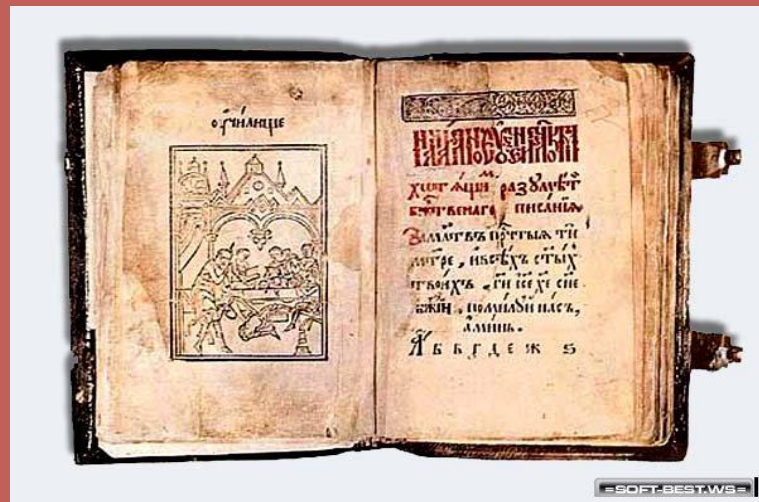 ᲂу҆чи́лище
хотѧ́щиⷨ разꙋмѣ́ти
бжⷭ҇твенагѡ писа́нїѧ
За мл҃твъ прⷱ҇тыѧ ти
мт҃ре , и҆всѣ́хъ ст҃ы́хъ
твои́хъ , гд҃и і҆с҃е хе҃ сн҃е
бж҃їи , поми́луй на́съ ,
а҆ми́нь .
А҆ Б В Г Д Е Ж Ѕ
=SOFT-BEST.WS=